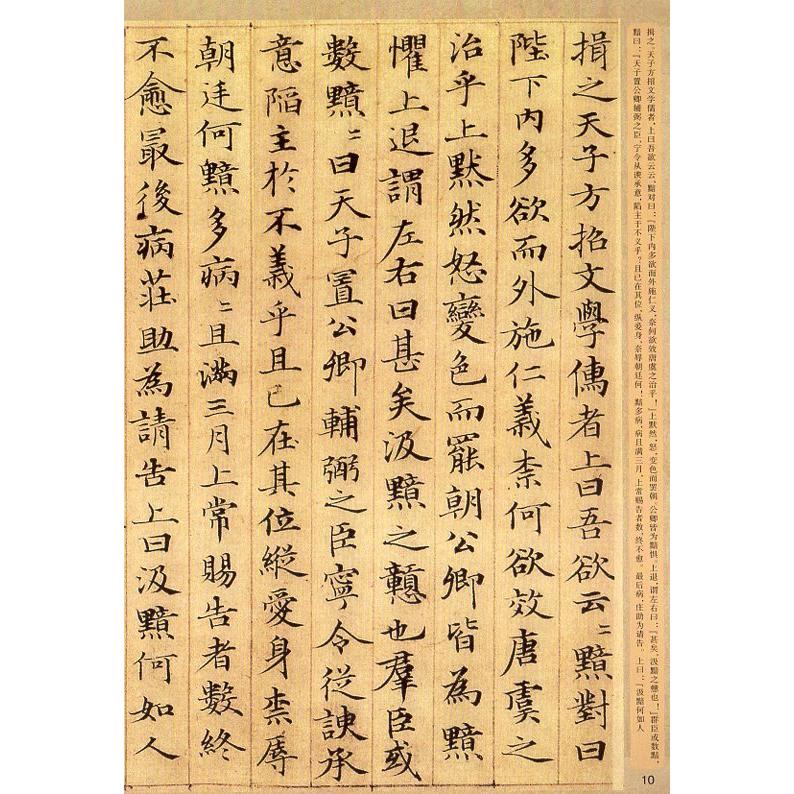 揖之。天子方招文学儒者,上曰吾欲云云,黯对曰:「陛下内多欲而外施仁义,奈何欲效唐虞之治乎!」上默然,怒,变色而罢朝。公卿皆为黯惧。上退,谓左右曰:「甚矣,汲黯之戆也!」群臣或数黯,
黯曰:「天子置公卿辅弼之臣,宁令从谀承意,陷主于不义乎?且已在其位,纵爱身,奈辱朝廷何!」黯多病,病且满三月,上常赐告者数,终不愈。最后病,庄助为请告。上曰:「汲黯何如人
揖之天子方招文學儒者上曰吾欲云〻黯對曰
陛下内多欲而外施仁義柰何欲效唐虞之
治乎上默然怒變色而罷朝公卿皆為黯
懼上退謂左右曰甚矣汲黯之戇也羣臣或
數黯〻曰天子置公卿輔弼之臣寧令從諛承
意陷主於不義乎且已在其位縱愛身柰辱
朝廷何黯多病〻且滿三月上常賜告者數終
不愈最後病莊助為請告上曰汲黯何如人
10